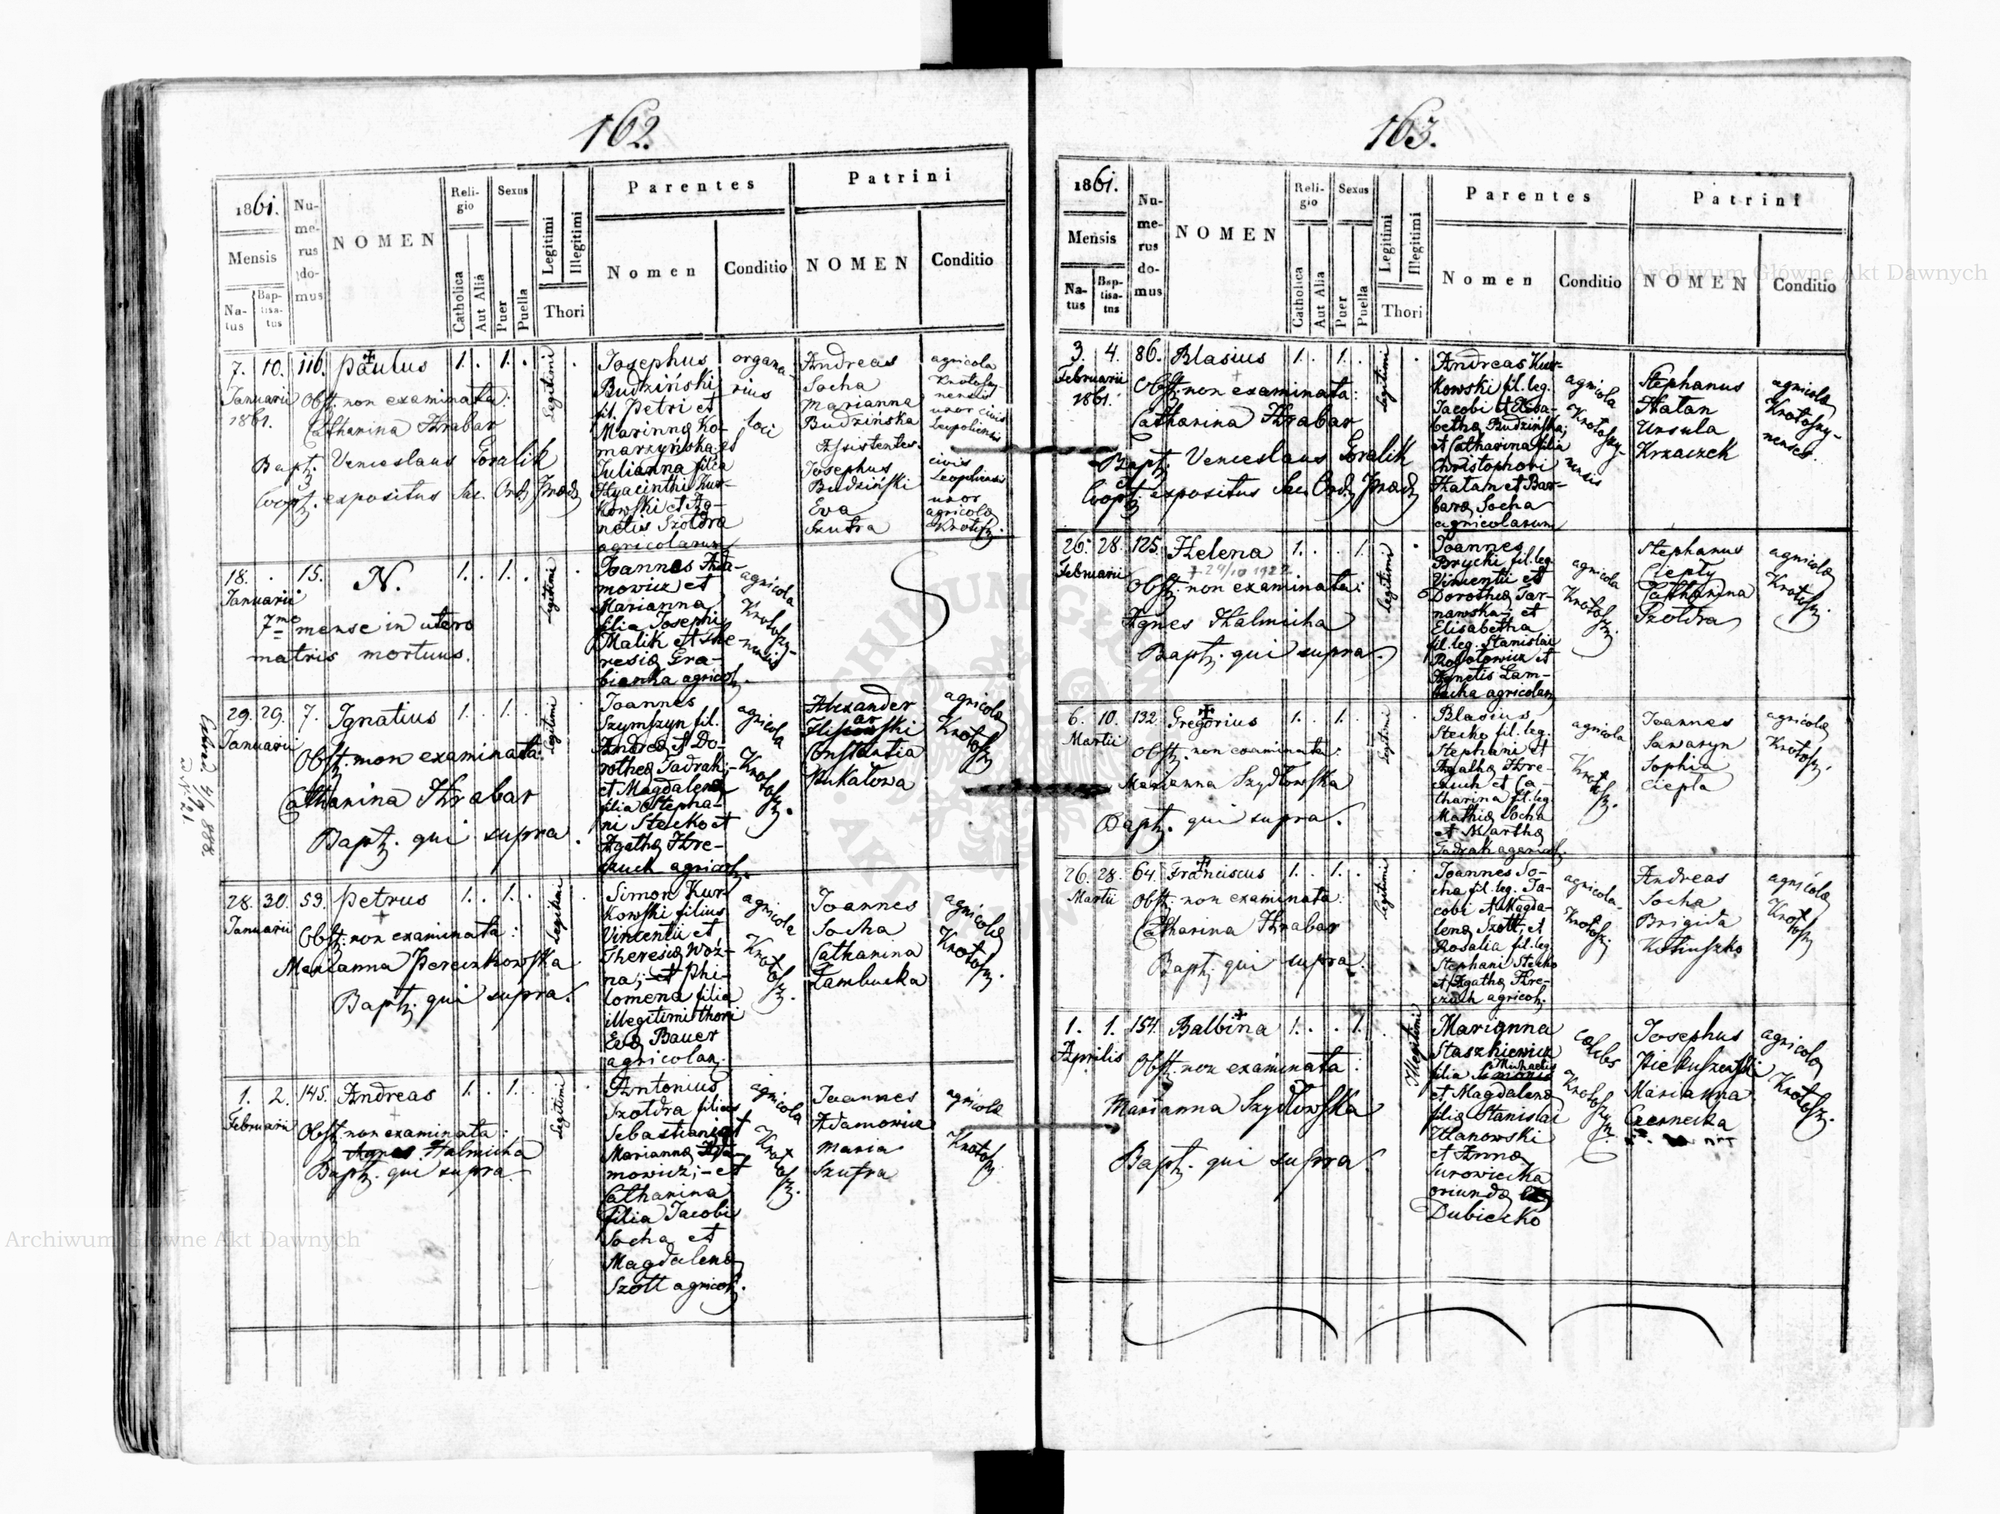 162.
1861.
Mensis
Na-
tus
Bap-
tisa-
tus
Nu-
me-
rus
do-
mus
NOMEN
Reli-
gio
Catholica
Aut Alia
Sexus
Puer
Puella
Legitimi
Illegitimi
Thori
Parentes
Nomen
Conditio
Patrini
NOMEN
Conditio
7. 10. 116. Paulus 1. . 1. .
Januarii
1861.
Obst. non examinata:
Catharina Hrabar
Bapt. Venceslaus Goralik
Coop. expositus Sac. Ord. Praed.
Legitimi
Josephus
Budziński
fil. Petri et
Marinnæ Ko-
marzyńska, et
Julianna filia
Hyacinthi Kur-
kowski et Ag-
netis Szoldra
agricolarum
organa-
rius
loci
Andreas
Socha
Marianna
Budzińska
Assistentes
Josephus
Budziński
Eva
Szufra
agricola
Krotosy-
nensis
uxor civis
Leopoliensis
civis
Leopoliensis
uxor
agricolæ
Krotosz.
18. . 15. N. 1. . 1. .
Januarii
7me mense in utero
matris mortuus.
Legitimi
Joannes Ada-
mowicz et
Marianna
filia Josephi
Malik et The-
resiæ Gra-
bianka agricol.
agricola
Krotoszy-
nensis
29. 29. 7. Ignatius 1. . 1. .
Januarii
Obst. non examinata:
Catharina Hrabar
Bapt. qui supra.
Legitimi
Joannes
Szymszyn fil.
Andreæ et Do-
rotheæ Jadrak;
et Magdalena
filia Stepha-
ni Stecko et
Agathæ Hre-
czuch agricol.
agricola
Krotosz.
Alexander
Constantia
Pukałowa
agricolæ
Krotosz.
28. 30. 59. Petrus 1. . 1. .
Januarii
Obst. non examinata:
Marianna Pereczkowska
Bapt. qui supra.
Legitimi
Simon Kur-
kowski filius
Vincentii et
Theresiæ Woź-
na; et Phi-
lomena filia
illegitimi thori
Evæ Bauer
agricolar.
agricola
Krotosz.
Joannes
Socha
Catharina
Lambucka
agricolæ
Krotosz.
1. 2. 145. Andreas 1. . 1. .
Februarii
Obst. non examinata:
Agnes Halmicha
Bapt. qui supra.
Legitimi
Antonius
Szoldra filius
Sebastiani et
Mariannæ Ada-
mowicz; et
Catharina
filia Jacobi
Socha et
Magdalenæ
Szott agricol.
agricola
Krotosz.
Joannes
Adamowicz
Maria
Szufra
agricolæ
Krotosz.
163.
1861.
Mensis
Na-
tus
Bap-
tisa-
tus
Nu-
me-
rus
do-
mus
NOMEN
Reli-
gio
Catholica
Aut Alia
Sexus
Puer
Puella
Legitimi
Illegitimi
Thori
Parentes
Nomen
Conditio
Patrini
NOMEN
Conditio
3. 4. 86. Blasius 1. . 1. .
Februarii
1861.
Obst. non examinata:
Catharina Hrabar
Bapt. Venceslaus Goralik
Coop. expositus Sac. Ord. Praed.
Legitimi
Andreas Kur-
kowski fil. leg.
Jacobi et Elisa-
bethæ Budzińska;
et Catharina filia
Christophori
Hatan et Bar-
baræ Socha
agricolarum
agricola
Krotoszy-
nensis
Stephanus
Hatan
Ursula
Krzaczek
agricolæ
Krotoszy-
nenses.
26. 28. 125. Helena 1. . . 1.
Februarii
Obst. non examinata:
Agnes Halmicha
Bapt. qui supra.
Legitimi
Joannes
Brychi fil. leg.
Vincentii et
Dorotheæ Tar-
nawska; et
Elisabetha
fil. leg. Stanislai
Rogotowicz et
Agnetis Lam-
bucka agricolar.
agricola
Krotosz.
Stephanus
Ciepły
Catharina
Szoldra
agricolæ
Krotosz.
6. 10. 132. Gregorius 1. . 1. .
Martii
Obst. non examinata:
Marianna Szydłowska
Bapt. qui supra.
Legitimi
Blasius
Stecko fil. leg.
Stephani et
Agathæ Hre-
czuch et Ca-
tharina fil. leg.
Mathiæ Socha
et Marthæ
Jadrak agricol.
agricola
Krotosz.
Joannes
Sawaryn
Sophia
Ciepła
agricolæ
Krotosz.
26. 28. 64. Franciscus 1. . 1. .
Martii
Obst. non examinata:
Catharina Hrabar
Bapt. qui supra.
Legitimi
Joannes So-
cha fil. leg. Ja-
cobi et Magda-
lenæ Szott; et
Rosalia fil. leg.
Stephani Stecko
et Agathæ Hre-
czuch agricol.
agricola
Krotosz.
Andreas
Socha
Brigida
Kosciuszko
agricolæ
Krotosz.
1. 1. 154. Balbina 1. . . 1.
Aprilis
Obst. non examinata:
Marianna Szydłowska
Bapt. qui supra.
Illegitimi
Marianna
Staszkiewicz
filia Michaelis
et Magdalenæ
filiæ Stanislai
Ulanowski
et Annæ
Surowiecka
oriunda
Dubiecko
cælebs
Krotosz.
Josephus
Piekuszewski
Marianna
Czernecka
agricolæ
Krotosz.
Archiwum Główne Akt Dawnych
Archiwum Główne Akt Dawnych